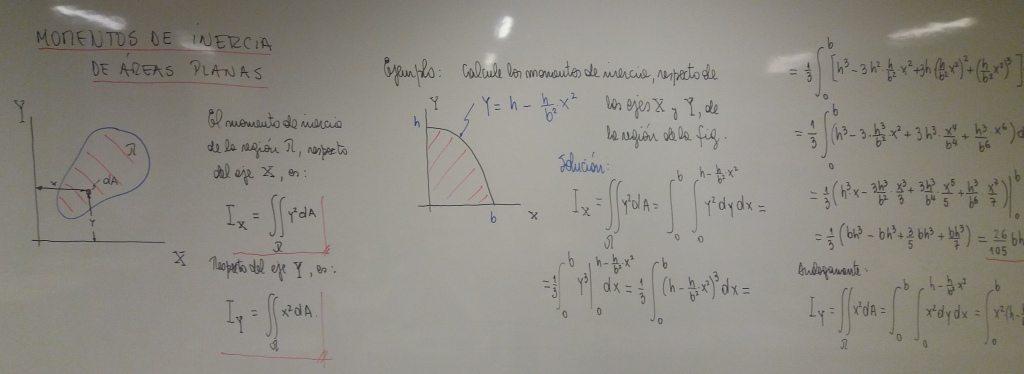 MOMENTOS DE INERCIA
DE ÁREAS PLANAS
Y
R
x
dA
Y
X
El momento de inercia
de la región R, respecto
del eje X, es:
I_x = ∬_R y² dA
Respecto del eje Y, es:
I_Y = ∬_R x² dA
Ejemplo: Calcule los momentos de inercia, respecto de
los ejes X y Y, de
la región de la fig.
Y
h
Y = h - h/b² x²
b
x
Solución:
I_x = ∬_R y² dA = ∫_0^b ∫_0^{h - h/b² x²} y² dy dx =
= 1/3 ∫_0^b y³ |_0^{h - h/b² x²} dx = 1/3 ∫_0^b (h - h/b² x²)³ dx =
= 1/3 ∫_0^b [h³ - 3h² h/b² x² + 3h (h/b² x²)² + (h/b² x²)³]
= 1/3 ∫_0^b (h³ - 3·h³/b² x² + 3h³·x⁴/b⁴ + h³/b⁶·x⁶)
= 1/3 (h³x - 3h³/b²·x³/3 + 3h³/b⁴·x⁵/5 + h³/b⁶·x⁷/7) |_0^b
= 1/3 (bh³ - bh³ + 3/5 bh³ + bh³/7) = 26/105 bh
Análogamente:
I_Y = ∬_R x² dA = ∫_0^b ∫_0^{h - h/b² x²} x² dy dx = ∫_0^b x² (h -